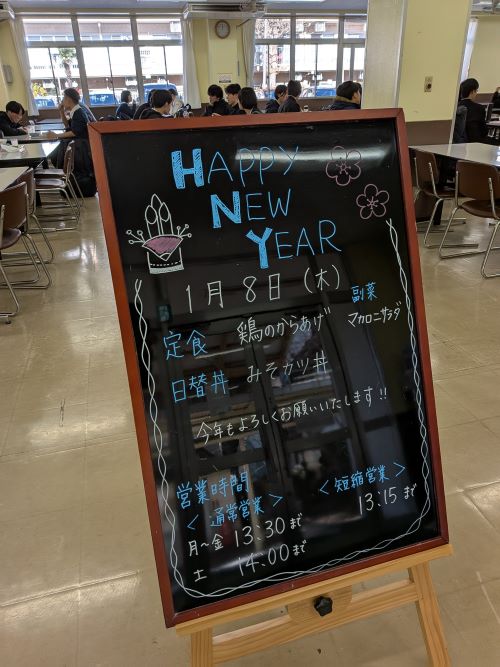 HAPPY
NEW
YEAR
1月8日(木)
定食 鶏のからあげ 副菜 マカロニサラダ
日替丼 みそカツ丼
今年もよろしくお願いいたします!!
営業時間
<通常営業> <短縮営業>
月~金 13:30まで 13:15まで
土 14:00まで